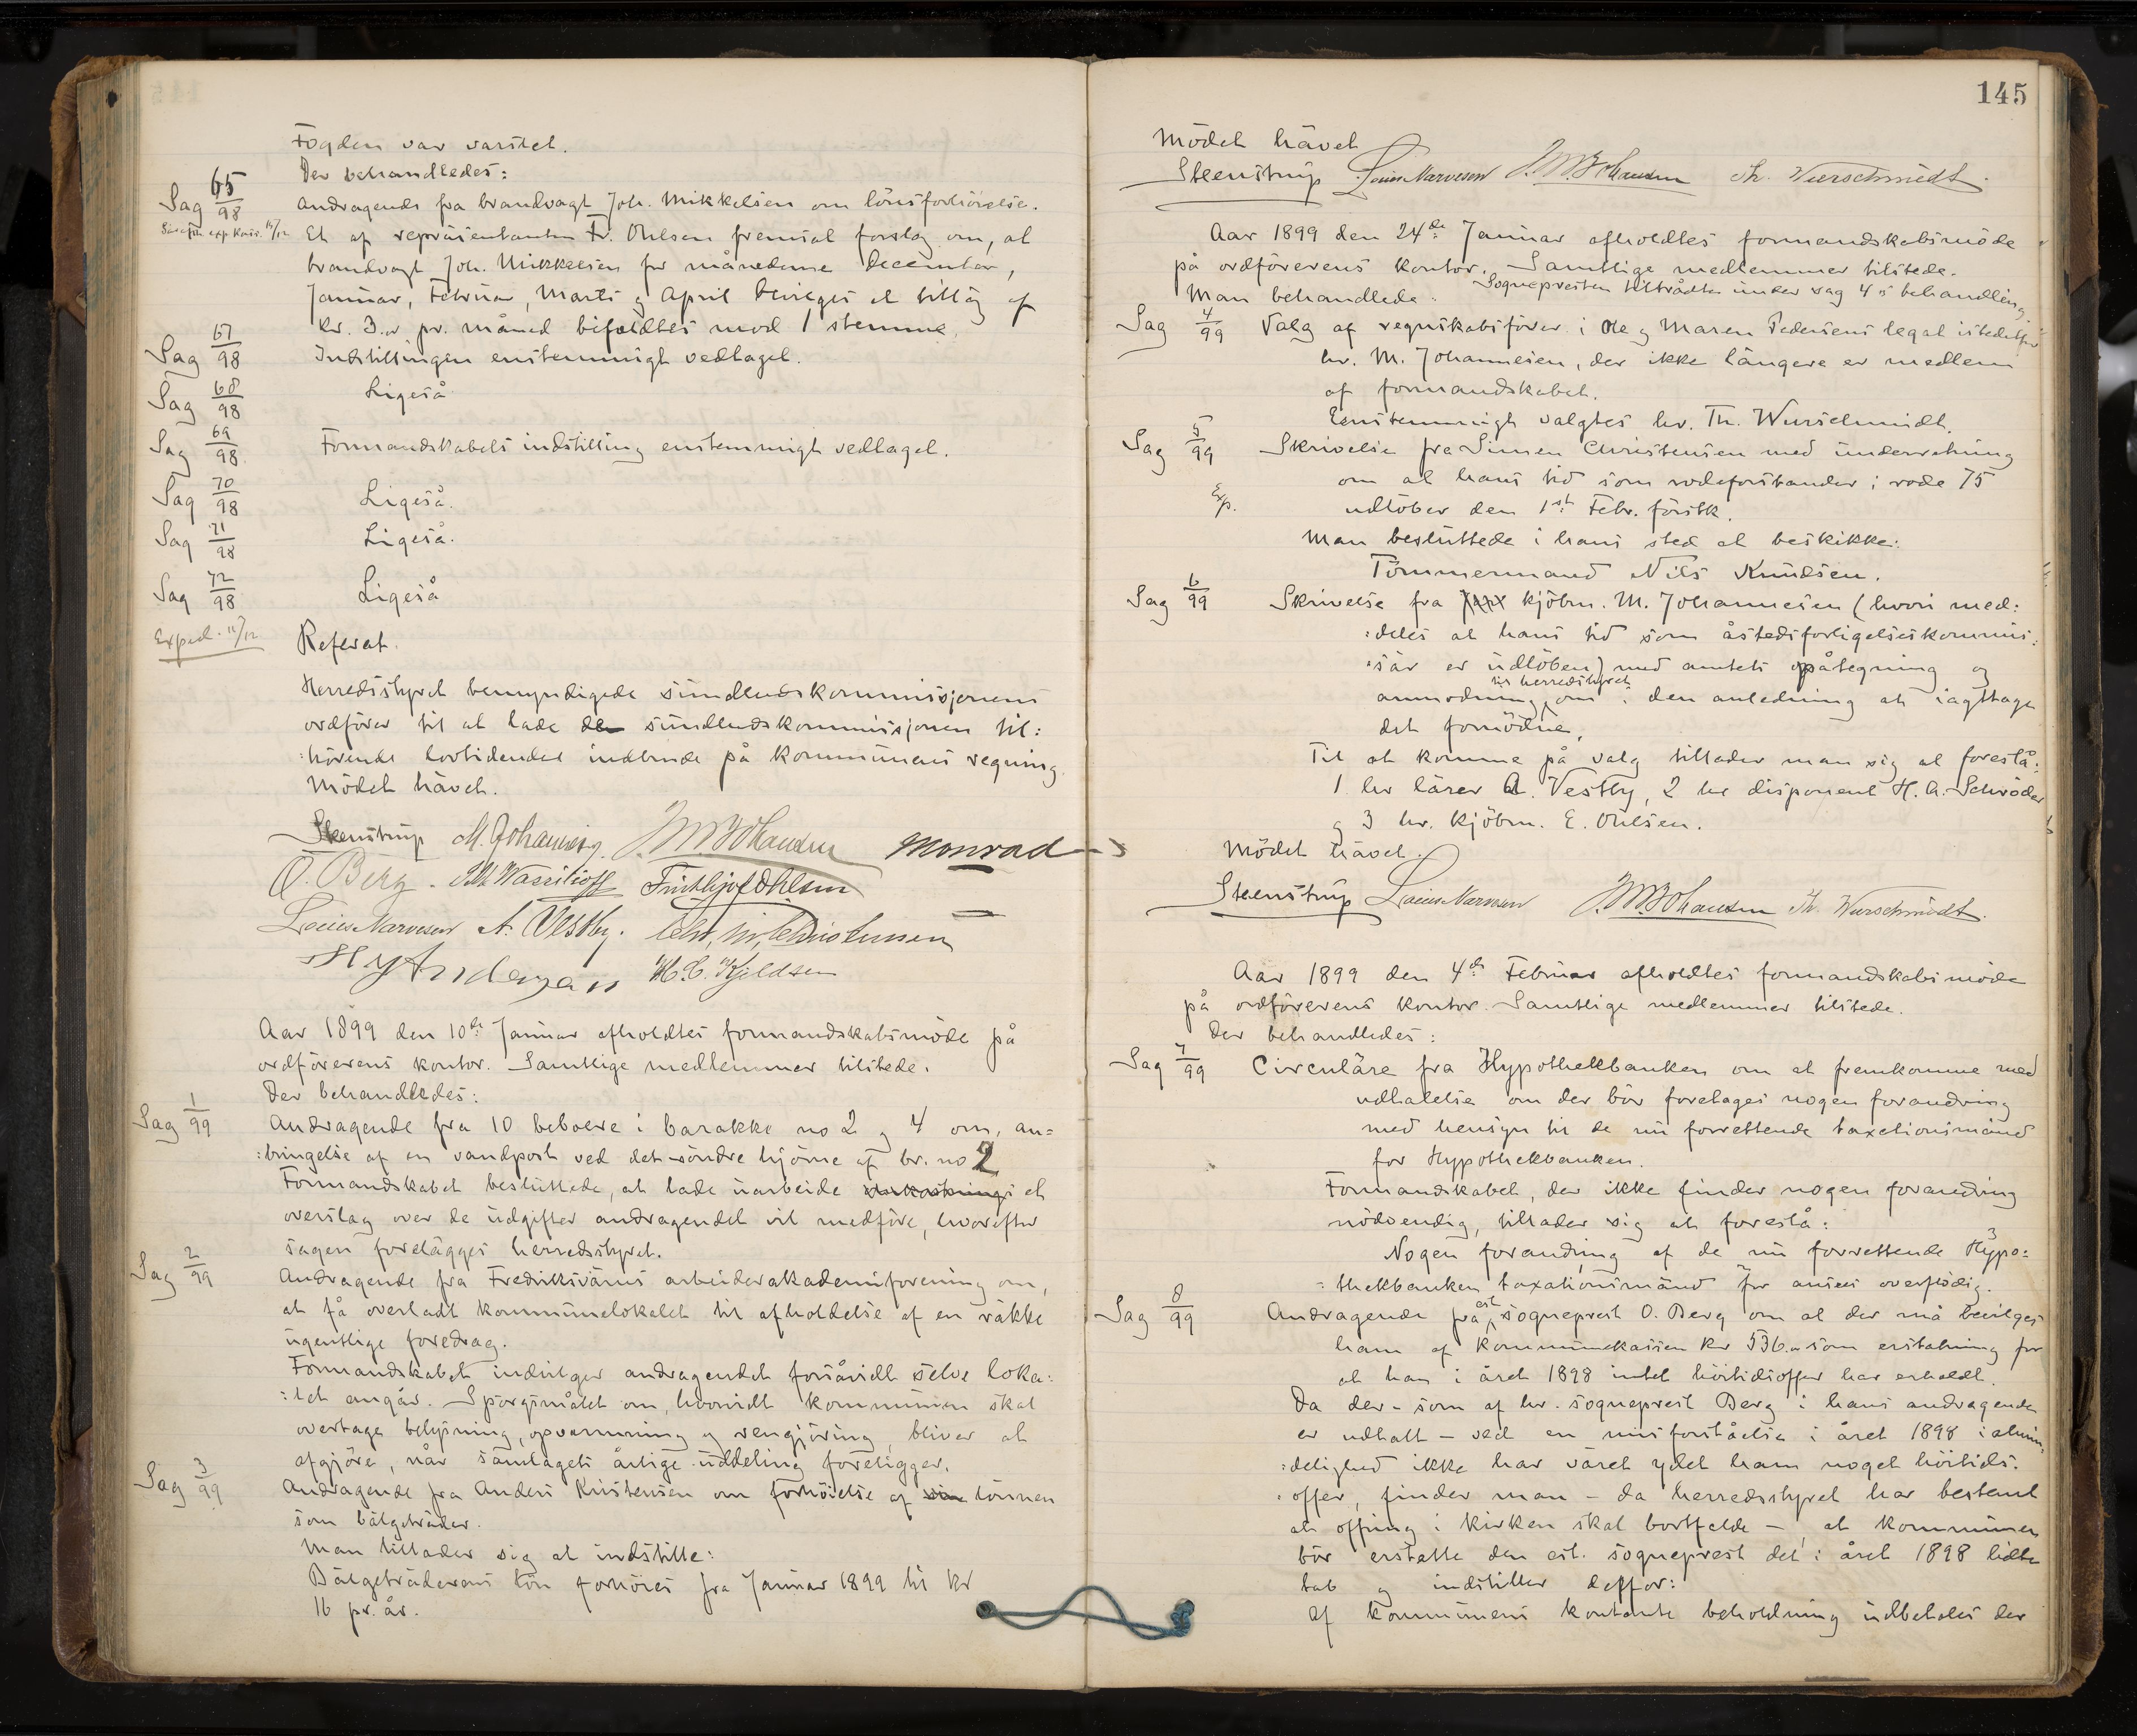 Fogden var varslet.
Der behandledes:
Sag 65/98 Andragende fra brandvagt Joh. Mikkelsen om lönsforhöielse.
exp. Kass. 15/12 Et af repräsentanten Fr. Ohlsen fremsat forslag om, at
brandvagt Joh. Mikkelsen for månederne December,
Januar, Februar, Marts og April bevilges et tillæg af
Kr. 3.00 pr. måned bifaldtes mod 1 stemme.
Sag 67/98 Indstillingen enstemmigt vedtaget.
Sag 68/98 Ligeså
Sag 69/98 Formandskabets indstilling enstemmigt vedtaget.
Sag 70/98 Ligeså.
Sag 71/98 Ligeså.
Sag 72/98 Ligeså
Exped. 15/12 Referat.
Herredsstyret bemyndigede sundhedskommissjonens
ordförer til at lade den sundhedskommissjonen til:
:hörende lovtidender indbinde på kommunens regning.
Mödet hävet.
Steenstrup M. Johannesen J. M. Johansen Monrad
O. Berg. Wassilioff Frithjof Ohlsen
Louis Narvesen A. Vestby. Chr. Christensen
H Andersen H. C. Kjeldsen
Aar 1899 den 10de Januar afholdtes formandskabsmöde på
ordförerens kontor. Samtlige medlemmer tilstede.
Der behandledes:
Sag 1/99 Andragende fra 10 beboere i barakke no 2 og 4 om, an=
:bringelse af en vandpost ved det söndre hjörne af br. no 2
Formandskabet besluttede, at lade uarbeide et
overslag over de udgifter andragendet vil medföre, hvorefter
sagen forelägges herredsstyret.
Sag 2/99 Andragende fra Fredriksvärns arbeiderakademiforening om,
at få overladt kommunelokalet til afholdelse af en räkke
ugentlige foredrag.
Formandskabet indvilger andragendet forsåvidt selve loka:
:let angår. Spörgsmålet om, hvorvidt kommunen skal
overtage belysning, opvarmning og rengjöring, bliver at
afgjöre, når samlagets årlige uddeling foreligger.
Sag 3/99 Andragende fra Anders Kristensen om forhöielse af sin lönnen
som bälgeträder.
Man tillader sig at indstille:
Bälgeträderens lön forhöies fra Januar 1899 til kr
16 pr. år.
145
Mödet hävet
Steenstrup Louis Narvesen J. M. Johansen Th. Wurschmidt.
Aar 1899 den 24de Januar afholdtes formandskabsmöde
på ordförerens kontor. Samtlige medlemmer tilstede.
Sognepresten tiltrådte under sag 4's behandling.
Man behandlede:
Sag 4/99 Valg af regnskabsförer i Ole og Maren Pedersens legat istedetfor
hr. M. Johannesen, der ikke längere er medlem
af formandskabet.
Eenstemmigt valgtes hr. Th. Wurschmidt.
Sag 5/99 Skrivelse fra Simen Christensen med underretning
om at hans tid som rodeforstander i rode 75
Exp. udlöber den 1ste Febr. förstk.
Man besluttede i hans sted at beskikke:
Tömmermand Nils Knudsen.
Sag 6/99 Skrivelse fra kjöbm. M. Johannesen (hvori med:
:deles at hans tid som åstedsforligelseskommis:
:sär er udlöben) med amtets påtegning og
til herredsstyret
anmodning om i den anledning at iagttage
det fornödne.
Til at komme på valg tillader man sig at foreslå:
1 hr lärer A. Vestby, 2 hr disponent H. A. Schröder
og 3 hr. kjöbm. E. Ohlsen.
Mödet hävet.
Steenstrup Louis Narvesen J. M. Johansen Th. Wurschmidt.
Aar 1899 den 4de Februar afholdtes formandskabsmöde
på ordförerens kontor. Samtlige medlemmer tilstede.
Der behandledes:
Sag 7/99 Circuläre fra Hypothekbanken om at fremkomme med
udtalelse om der bör foretages nogen forandring
med hensyn til de nu forrettende taxationsmänd
for Hypothekbanken.
Formandskabet, der ikke finder nogen forandring
nödvendig, tillader sig at foreslå:
Nogen forandring af de nu forrettende Hypo:
:thekbanken taxationsmänd for ansees overflödig.
Sag 8/99 Andragende fra est. sogneprest O. Berg om at der må bevilges
ham af kommunekassen kr 536.00 som erstatning for
at han i året 1898 intet höitidsoffer har erholdt.
Da der - som af hr. sogneprest Berg i hans andragende
er udtalt - ved en misforståelse i året 1898 i almin:
:delighed ikke har väret ydet ham noget höitids:
:offer, finder man - da herredsstyret har bestemt
at offring i kirken skal bortfalde -, at kommunen
bör erstatte den est. sogneprest det i året 1898 lidte
tab og indstiller derfor:
Af kommunens kontante beholdning udbetales der